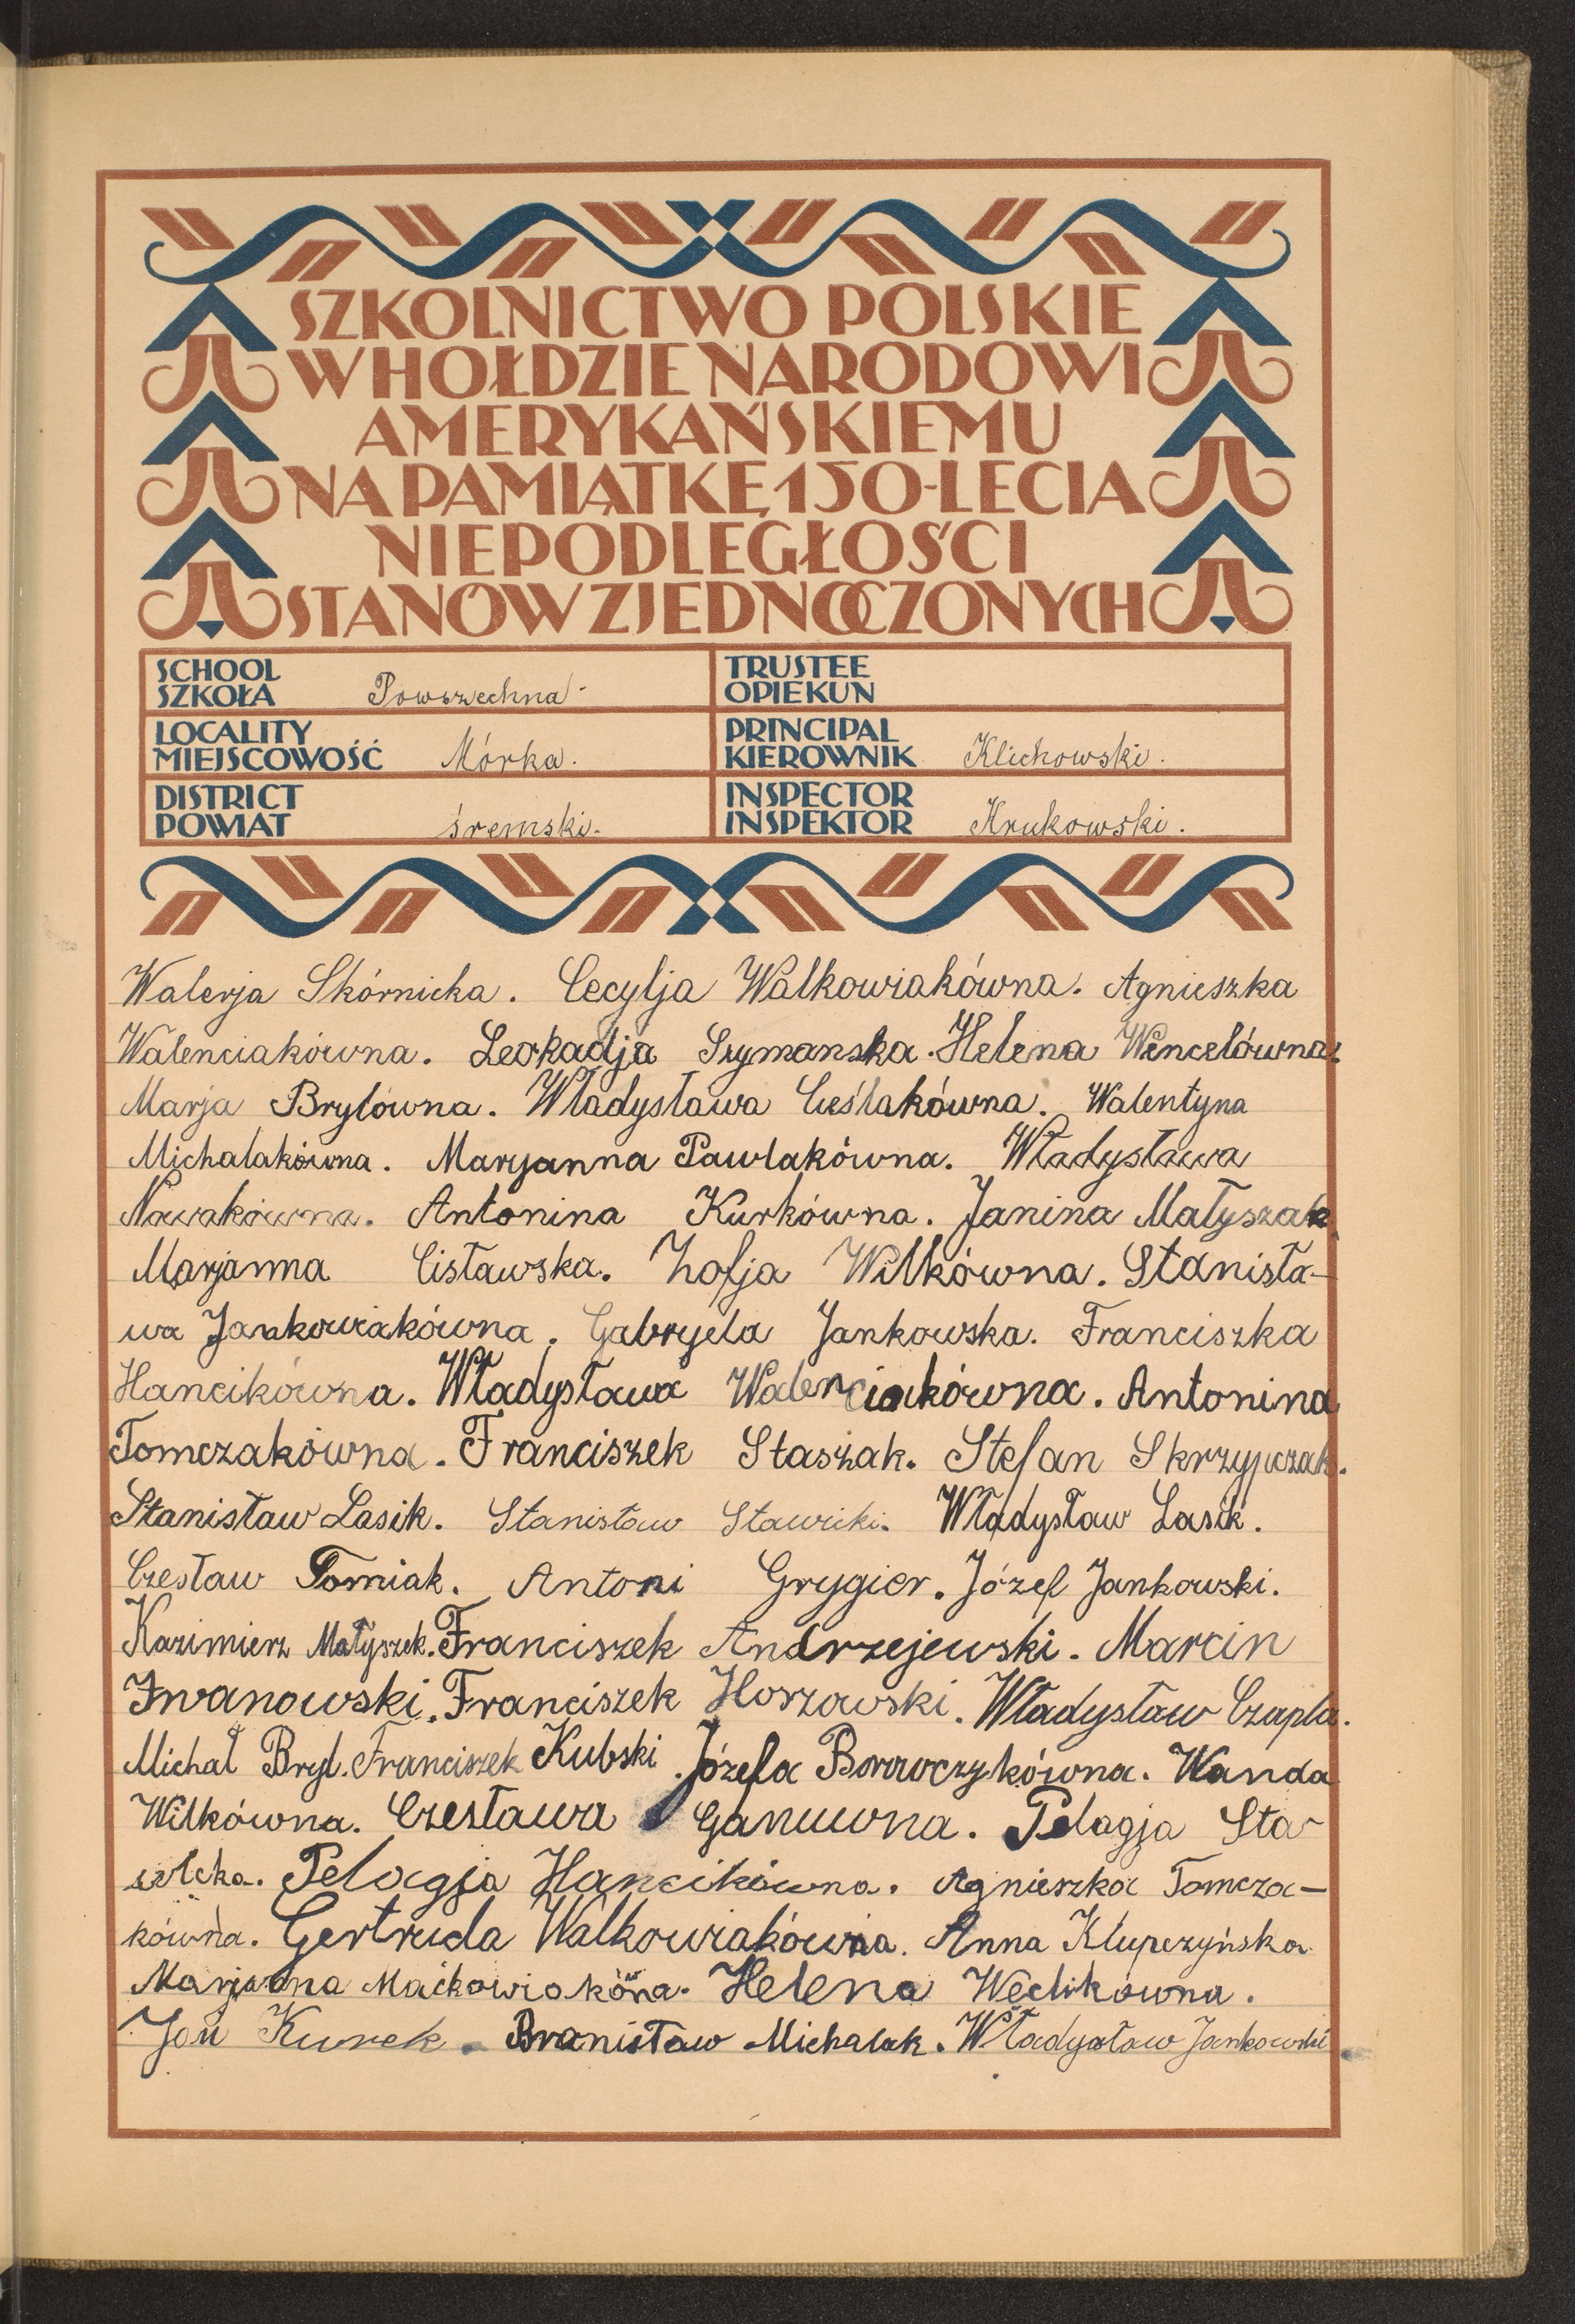 SZKOLNICTWO POLSKIE
W HOŁDZIE NARODOWI
AMERYKAŃSKIEMU
NA PAMIĄTKĘ 150-LECIA
NIEPODLEGŁOŚCI
STANÓW ZJEDNOCZONYCH
SCHOOL
SZKOŁA Powszechna
TRUSTEE
OPIEKUN
LOCALITY
MIEJSCOWOŚĆ Mórka.
PRINCIPAL
KIEROWNIK Klichowski.
DISTRICT
POWIAT śremski.
INSPECTOR
INSPEKTOR Krukowski.
Walerja Skórnicka. Cecylja Walkowiakówna. Agnieszka
Walenciakówna. Leokadja Szymanska. Helena Wencelówna.
Marja Brylówna. Władysława Cieślakówna. Walentyna
Michalakówna. Maryanna Pawlakówna. Władysława
Nowakówna. Antonina Kurkówna. Janina Małyszak
Marjanna Cisławska. Zofja Wilkówna. Stanisła-
wa Jankowiakówna. Gabryela Jankowska. Franciszka
Hancikówna. Władysława Walenciakówna. Antonina
Tomczakówna. Franciszek Stasżak. Stefan Skrzypczak.
Stanisław Lasik. Stanisław Stawicki. Władysław Lasik.
Czesław Tomiak. Antoni Grygier. Józef Jankowski.
Kazimierz Małyszek. Franciszek Andrzejewski. Marcin
Iwanowski. Franciszek Horzowski. Władysław Czapla.
Michał Bryl. Franciszek Kubski. Józefa Borowczykówna. Wanda
Wilkówna. Czesława Pelagja Sta-
Pelagja Hancikówna. Agnieszka Tomcza-
kówna. Gertruda Walkowiakówna. Anna Klupczyńska
Marjanna Helena Wedikówna.
Jan Kurek. Bronisław Michalak. Władysław Jankowski